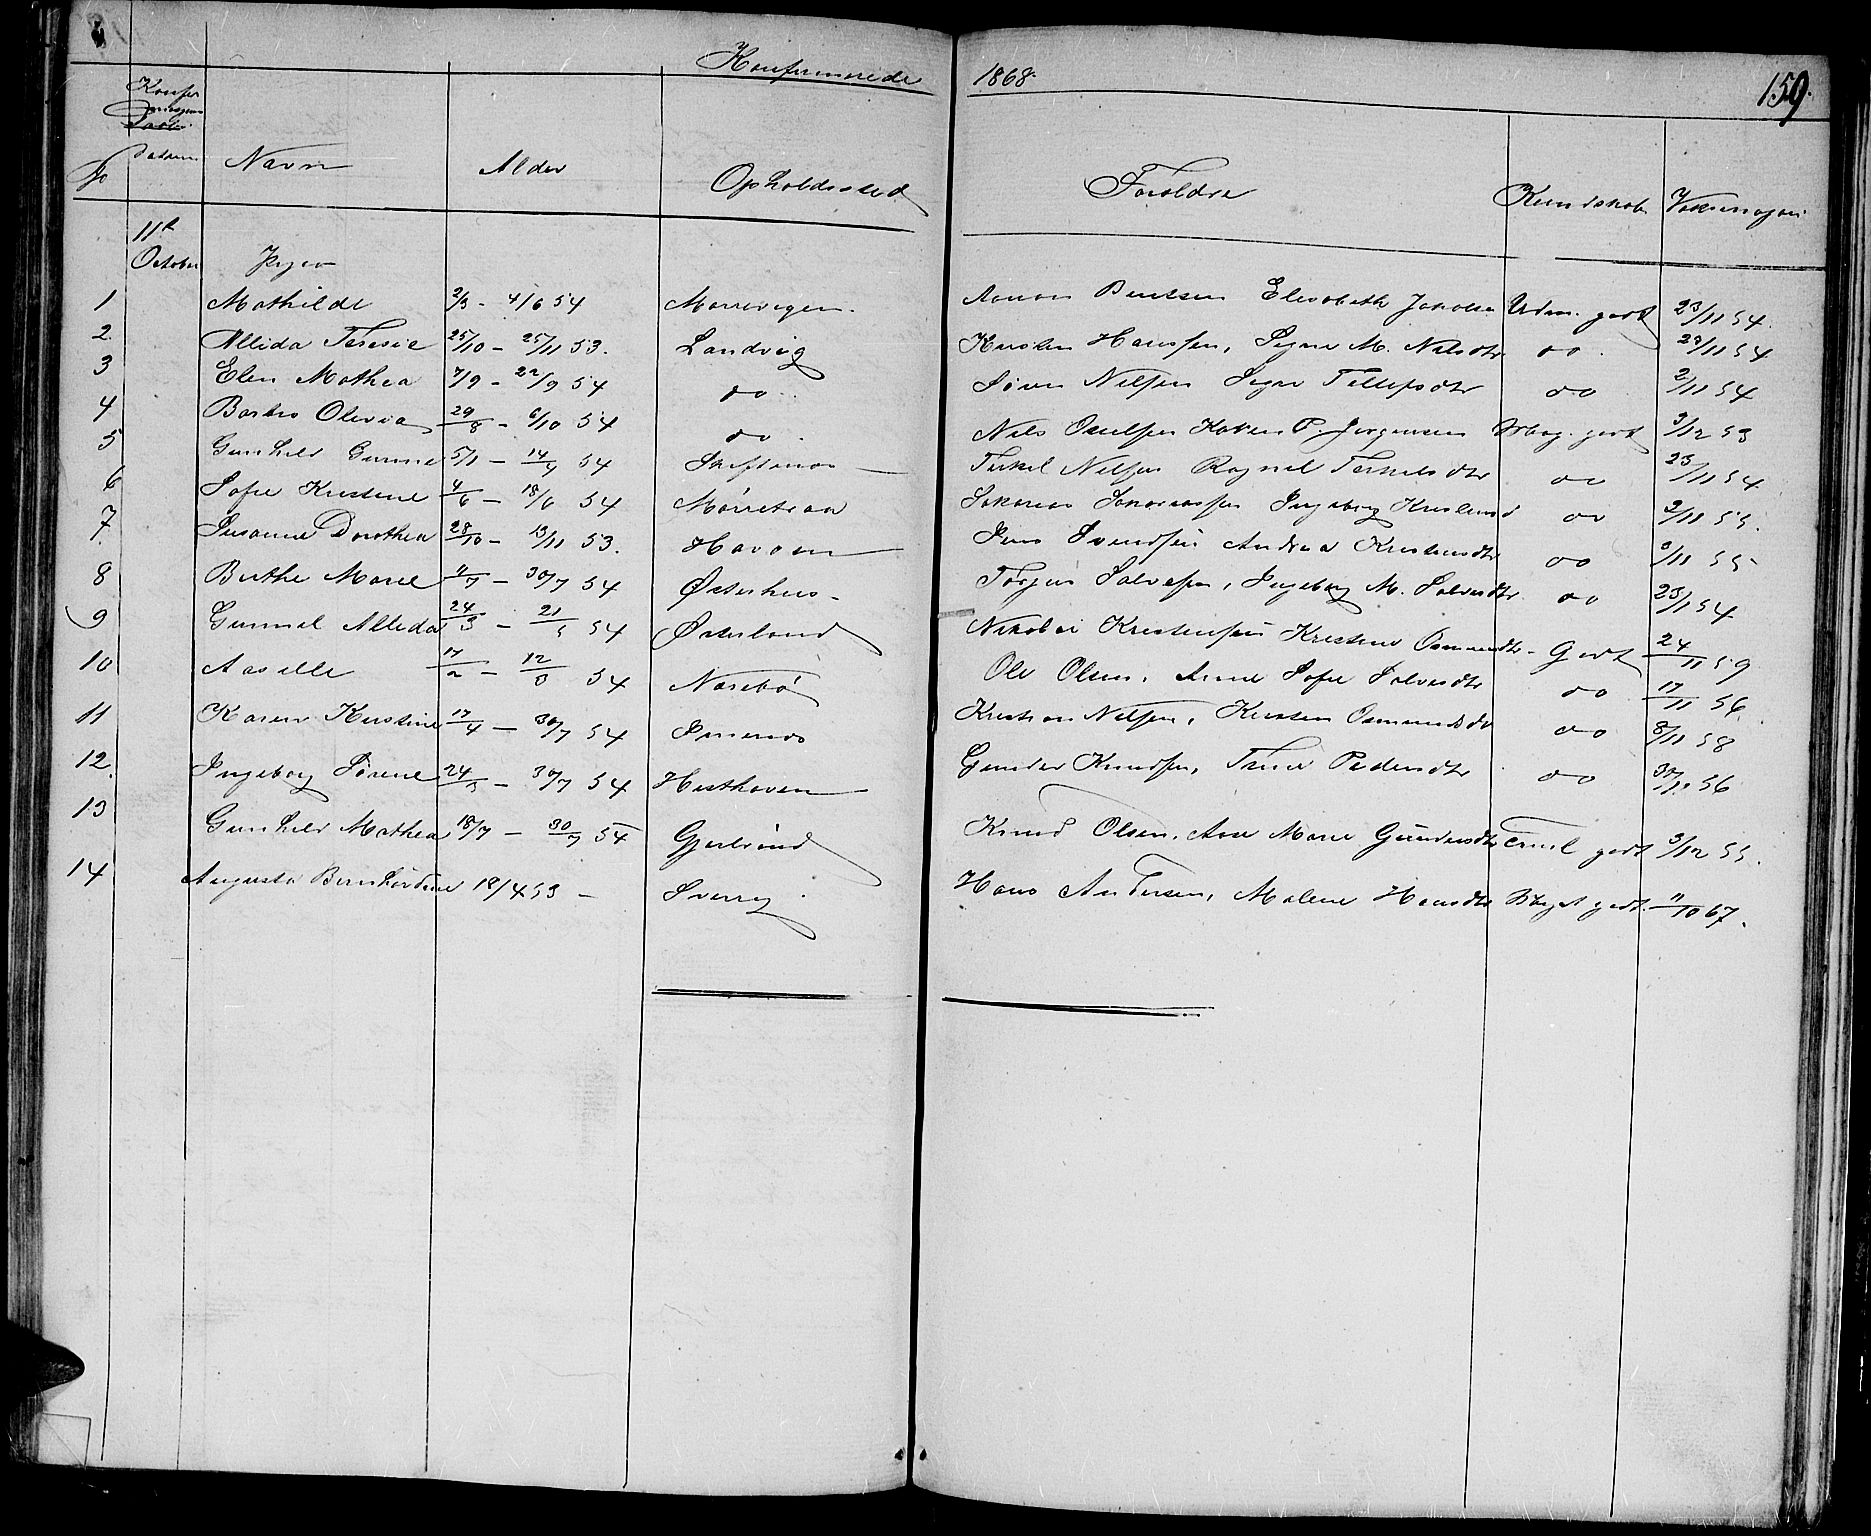 Konfirmerede 1868. 159.
No Datum Navn Alder Opholdssted Foreldre Kundskab Vaksinasjon
11te October Piger
1 Mathilde 2/3 - 4/6 54 Morrevigen. Bentsen Elisabeth Udm. godt 23/11 54.
2. Allida Teresie 25/10 - 25/11 53. Landvig Kersten Hanssen, Signe M. Nilsdtr do. 23/11 54
3 Elen Mathea 7/9 - 22/9 54 do Søren Nilsen Signe Tellefsdtr do 2/11 54
4 Barbro Olevia 29/8 - 6/10 54 do. Nils Karen P. Jørgensen Mag. godt 3/12 53
5 Gunhild Gurine 5/1 - 14/4 54 Terkel Nilsen Ragnil Terkelsdtr do 23/11 54
6 Sofie Kristine 4/6 - 18/6 54 Morretraa Sakarias Sakariassen Ingeborg do 2/11 55.
7. Susanne Dorothea 28/10 - 13/11 53. Havaasen Jens Svendsen Andrea Kristensdtr do 8/11 55
8 Berthe Marie 11/7 - 30/7 54 Østerhus Torjus Salvesen, Ingeborg M. Salvesdtr. do 23/11 54
9 Gunnil Allida 24/3 - 21/5 54 Østerland Nikolai Kristensen Kristine Osmundsdtr. Godt 24/11 59
10 Aasille 17/2 - 12/3 54 Narebø Ole Olsen, Anne Sofie Salvesdtr do 17/11 56
11 Karen Kirstine 17/4 - 30/7 54 Imenes Kristian Nilsen, Kirsten Osmundsdtr do 8/11 58
12. Ingeborg Sørine 24/5 - 30/7 54 Hesthaven Gunder Knudsen, Trine Pedersdtr do 30/10 56
13 Gunhild Mathea 18/7 - 30/7 54 Knud Olsen. Ane Marie Gundersdtr Teml. godt 3/12 55.
14 Augusta Bernhardine 18/4 53 - Sverrig Hans Andersen, Malene Hansdtr Meget godt. 11/10 67.